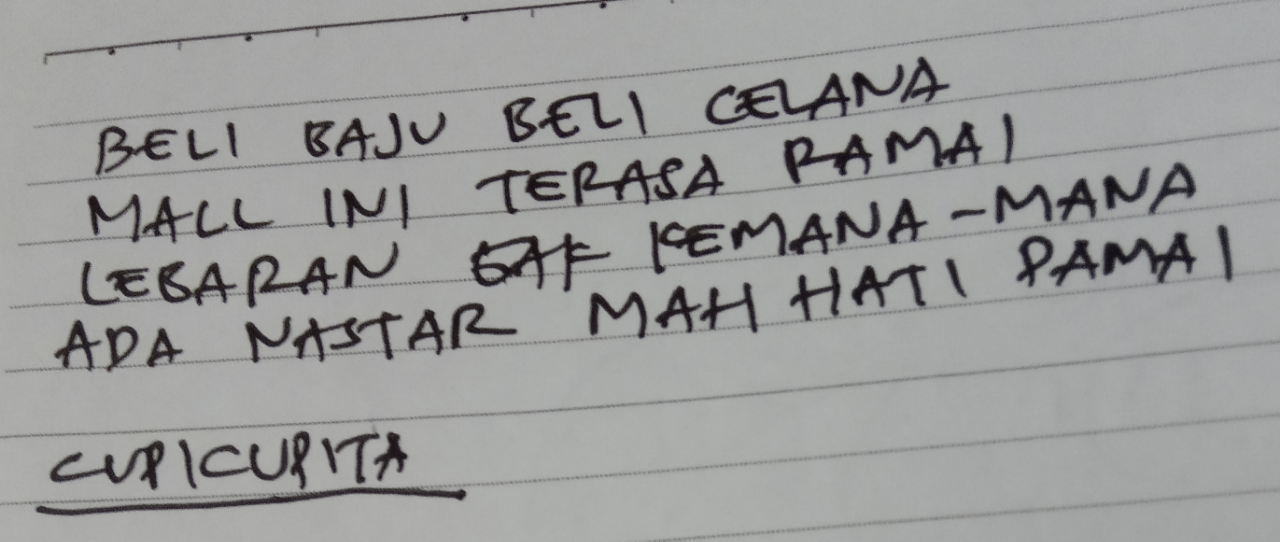 BELI BAJU BELI CELANA
MALL INI TERASA RAMAI
LEBARAN GAK KEMANA-MANA
ADA NASTAR MAH HATI DAMAI
CUPICUPITA